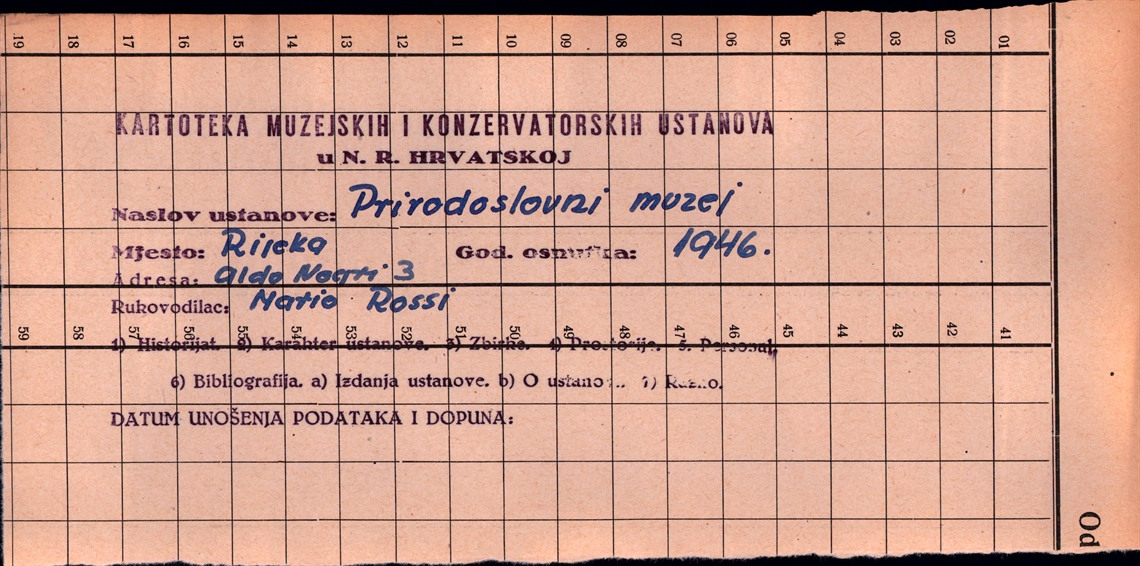 19 18 17 16 15 14 13 12 11 10 09 08 07 06 05 04 03 02 01
KARTOTEKA MUZEJSKIH I KONZERVATORSKIH USTANOVA
u N. R. HRVATSKOJ
Naslov ustanove: Prirodoslovni muzej
Mjesto: Rijeka God. osnutka: 1946.
Adresa: Aldo Negri 3
Rukovodilac: Mario Rossi
59 58 57 56 55 54 53 52 51 50 49 48 47 46 45 44 43 42 41
1) Historijat. 2) Karakter ustanove. 3) Zbirke. 4) Prostorije. 5. Personal,
6) Bibliografija. a) Izdanja ustanove. b) O ustanovi. 7) Razno.
DATUM UNOŠENJA PODATAKA I DOPUNA:
Od